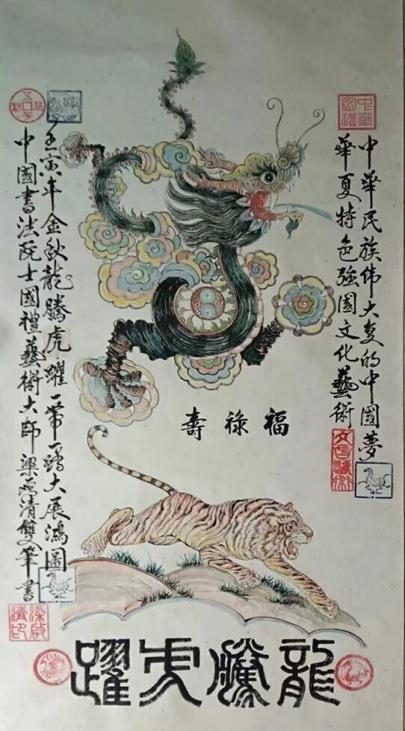 中華民族伟大复的中國夢
華夏特色強國文化藝術
福祿壽
龍騰虎躍
壬寅年金秋龍騰虎躍一带一路大展鴻圖
中國書法院士國禮藝術大師梁志清雙筆書